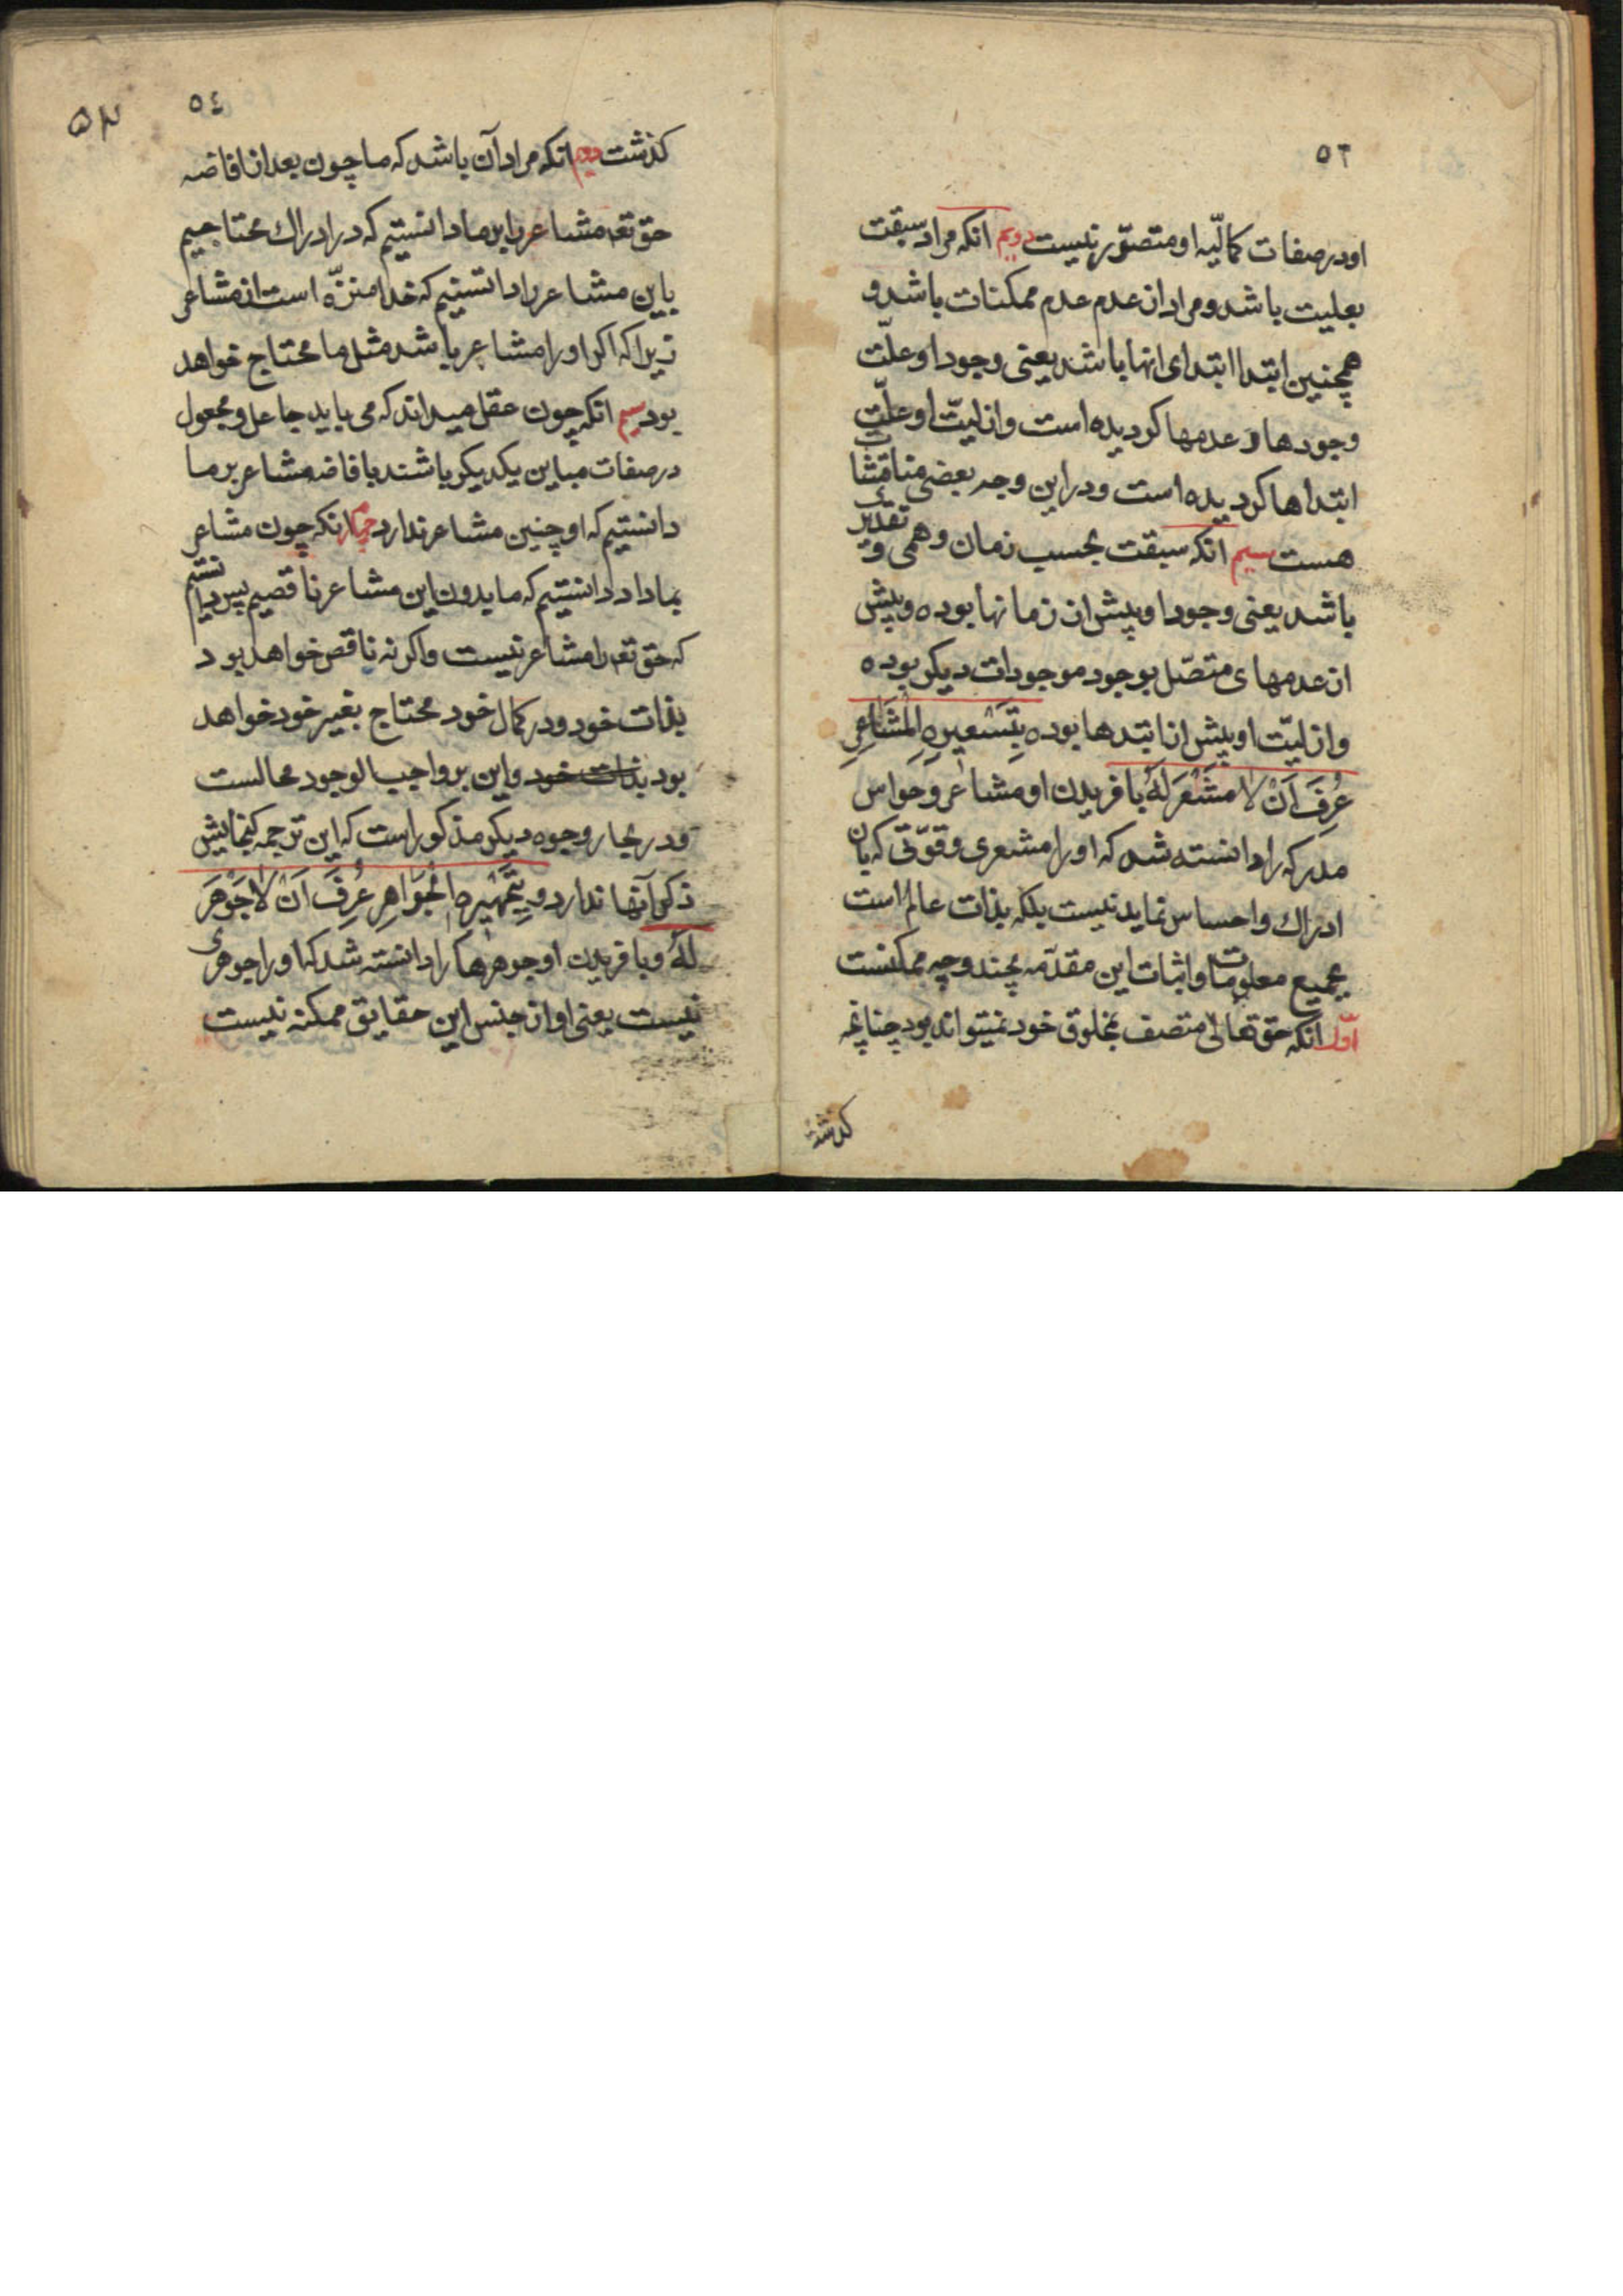 ٥٣
او در صفات کمالیّه او متصوّر نیست دویم انکه مراد سبقت
بعلیت باشد و مراد از عدم عدم ممکنات باشد و
همچنین ابتدا ابتدای انها باشد یعنی وجود او علّت
وجودها و عدمها کردیده است و ازلیّت او علّت
ابتداها کردیده است و در این وجه بعضی مناقشات
هست سیم انکه سبقت بحسب زمان وهمی و تقدیری
باشد یعنی وجود او پیش از زمانها بوده و پیش
از عدمهای متصّل بوجود موجودات دیکر بوده
و ازلیّت او پیش از ابتدها بوده بِتَشْعِیرِهِ الْمَشَاعِرِ
عُرِفَ اَنْ لا مَشْعَرَ لَهُ بافریدن او مشاعر و حواس
مدرکه را دانسته شد که او را مشعری و قوّتی که بان
ادراك و احساس نماید نیست بلکه بذات عالم است
بجمیع معلومات و اثبات این مقدّمه بچند وجه ممکنست
اوّل انکه حق تعالی متصف بمخلوق خود نمیتواند بود چنانچه
کذشت
٥٤
٥٣
کذشت دویم انکه مراد آن باشد که ما چون بعد از افاضه
حق تعه مشاعر را بر ما دانستیم که در ادراك محتاجیم
باین مشاعر را دانستیم که خدا منزّه است از مشاعر
زیرا که اکر او را مشاعر باشد مثل ما محتاج خواهد
بود سیم انکه چون عقل میداند که می باید جاعل و مجعول
در صفات مباین یکدیکر باشند بافاضه مشاعر بر ما
دانستیم که او چنین مشاعر ندارد چهارم انکه چون مشاعر
بما داد دانستیم که ما بدون این مشاعر ناقصیم پس دانستیم
که حق تعه را مشاعر نیست و اکر نه ناقص خواهد بود
بذات خود و در کمال خود محتاج بغیر خود خواهد
بود بذات خود و این بر واجب الوجود محالست
و در بحار وجوه دیکر مذکور است که این ترجمه کنجایش
ذکر آنها ندارد و بِتَجْهِیرِهِ الْجَوَاهِرِ عُرِفَ اَنْ لا جَوْهَرَ
لَهُ و بافریدن او جوهرها را دانسته شد که او را جوهری
نیست یعنی او از جنس این حقایق ممکنه نیست